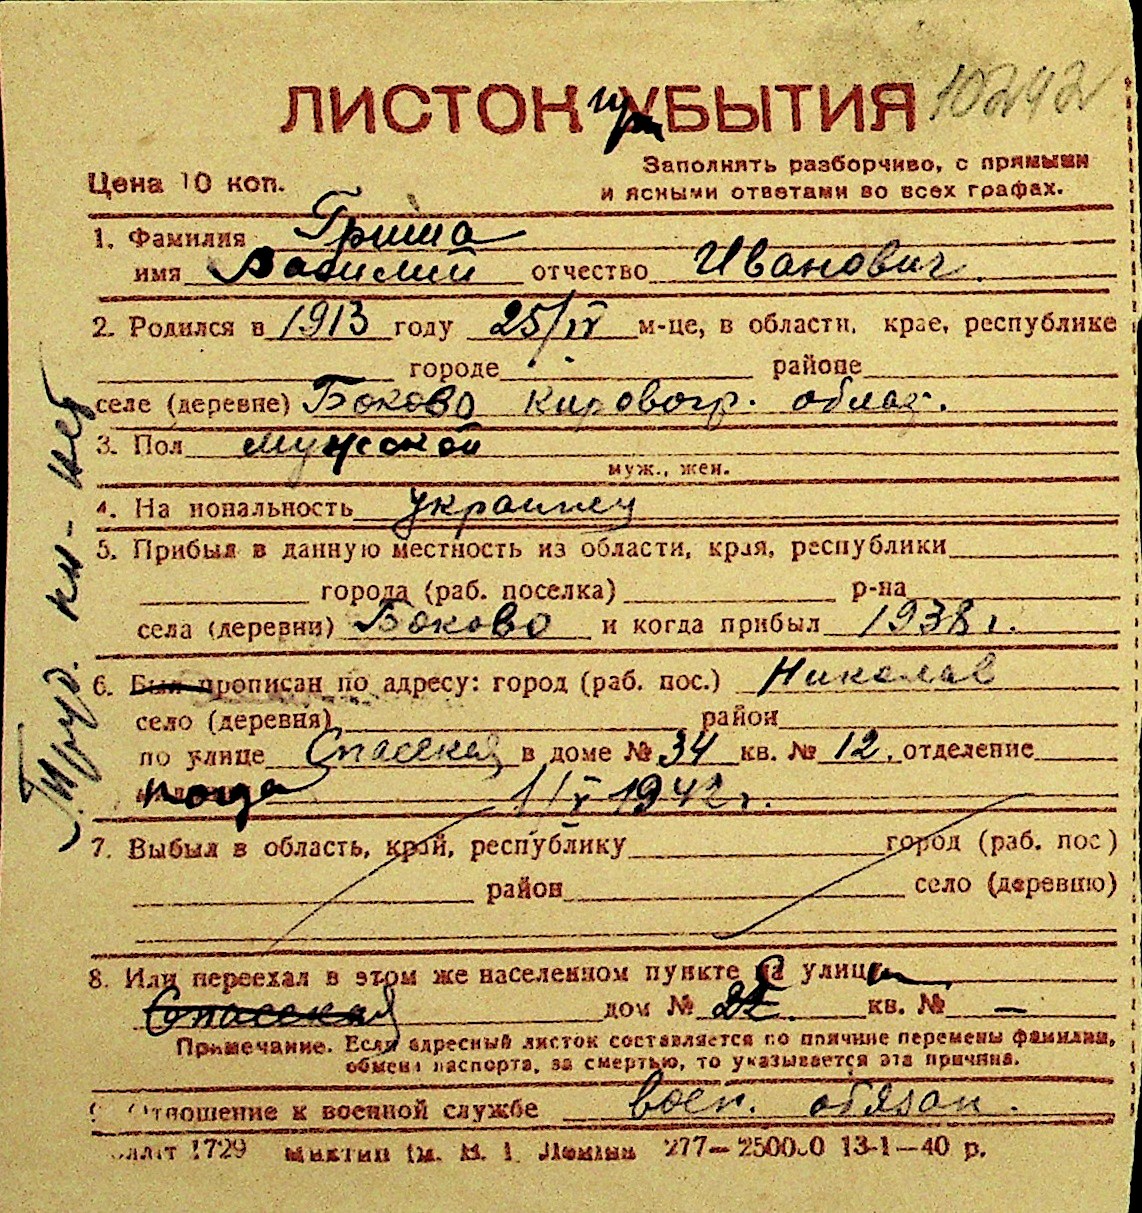 10242
ЛИСТОК при УБЫТИЯ
Заполнять разборчиво, с прямыми
Цена 10 коп. и ясными ответами во всех графах.
1. Фамилия Гриша
имя Василий отчество Иванович
2. Родился в 1913 году 25/IV м-це, в области, крае, республике
городе районе
селе (деревне) Боково Кировогр. облас.
3. Пол мужской
муж., жен.
4. На иональность украинец
5. Прибыл в данную местность из области, края, республики
города (раб. поселка) р-на
села (деревни) Боково и когда прибыл 1938 г.
6. Был прописан по адресу: город (раб. пос.) Николаев
село (деревня) район
по улице Спасская в доме № 34 кв. № 12. отделение
когда 1/V 1942 г.
7. Выбыл в область, край, республику город (раб. пос)
район село (деревню)
8. Или переехал в этом же населенном пункте с улицы
Спасская дом № 22. кв. № —
Примечание. Если адресный листок составляется по причине перемены фамилии,
обмена паспорта, за смертью, то указывается эта причина.
9. Отношение к военной службе воен. обязан.
1729 им. В. I. Ленина 277—250000 13-1—40 р.